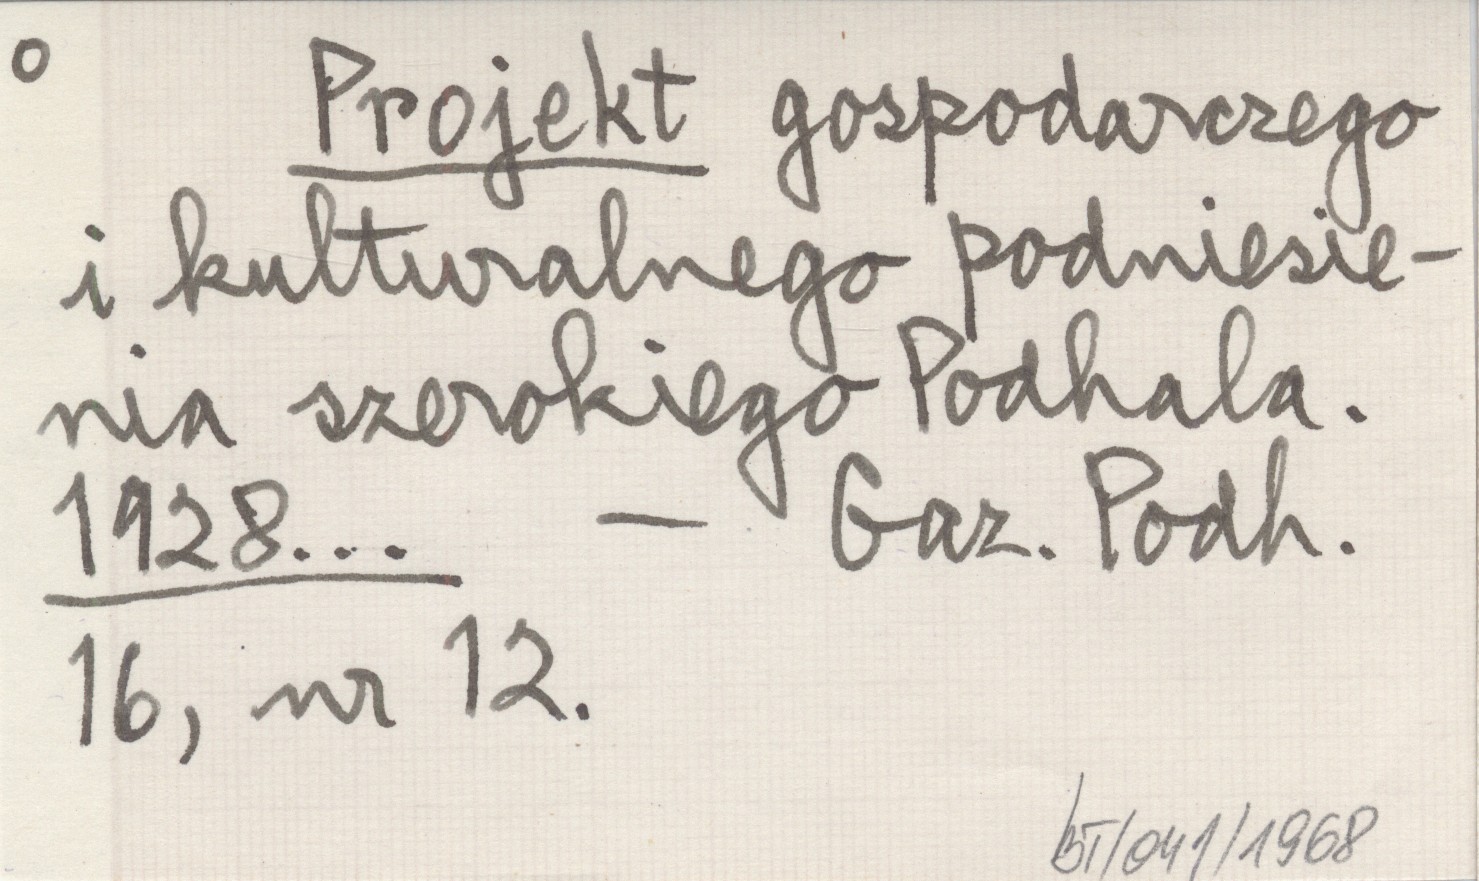 o Projekt gospodarczego
i kulturalnego podniesie-
nia szerokiego Podhala.
1928... — Gaz. Podh.
16, nr 12.
bT/041/1968